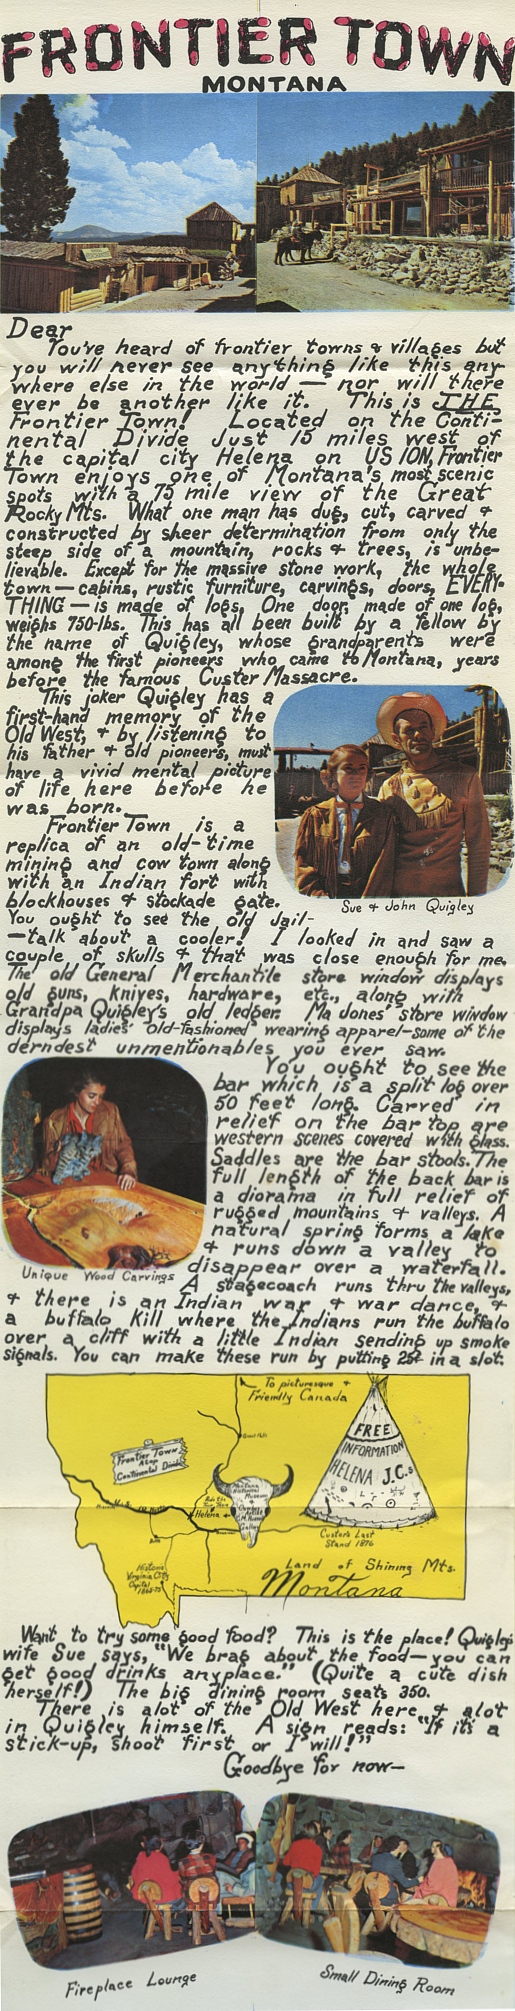 FRONTIER TOWN
MONTANA
Dear
You've heard of frontier towns & villages but
you will never see anything like this any-
where else in the world — nor will there
ever be another like it. This is THE
Frontier Town! Located on the Conti-
nental Divide Just 15 miles west of
the capital city Helena on US 10N, Frontier
Town enjoys one of Montana's most scenic
spots with a 75 mile view of the Great
Rocky Mts. What one man has dug, cut, carved &
constructed by sheer determination from only the
steep side of a mountain, rocks & trees, is unbe-
lievable. Except for the massive stone work, the whole
town — cabins, rustic furniture, carvings, doors, EVERY-
THING — is made of logs, One door, made of one log,
weighs 750-lbs. This has all been built by a fellow by
the name of Quigley, whose grandparents were
among the first pioneers who came to Montana, years
before the famous Custer Massacre.
This joker Quigley has a
first-hand memory of the
Old West, & by listening to
his father & old pioneers, must
have a vivid mental picture
of life here before he
was born.
Frontier Town is a
replica of an old-time
mining and cow town along
with an Indian fort with
blockhouses & stockade gate.
Sue & John Quigley
You ought to see the old Jail-
—talk about a cooler! I looked in and saw a
couple of skulls & that was close enough for me.
The old General Merchantile store window displays
old guns, knives, hardware, etc., along with
Grandpa Quigley's old ledger. Ma Jones' store window
displays ladies' old-fashioned wearing apparel—some of the
derndest unmentionables you ever saw.
You ought to see the
bar which is a split log over
50 feet long. Carved in
relief on the bar top are
western scenes covered with glass.
Saddles are the bar stools. The
full length of the back bar is
a diorama in full relief of
rugged mountains & valleys. A
natural spring forms a lake
& runs down a valley to
disappear over a waterfall.
Unique Wood Carvings
A stagecoach runs thru the valleys,
& there is an Indian war & war dance, &
a buffalo kill where the Indians run the buffalo
over a cliff with a little Indian sending up smoke
signals. You can make these run by putting 25¢ in a slot.
To picturesque &
Friendly Canada
Great Falls
FREE
INFORMATION
HELENA J.C.s
Frontier Town
Atop
Continental Divide
Montana
Historical
Museum
Helena
Custer's Last
Stand 1876
Butte
Historic
Virginia City
Capitol
1865-75
Land of Shining Mts.
Montana
Want to try some good food? This is the place! Quigley's
wife Sue says, "We brag about the food—you can
get good drinks anyplace." (Quite a cute dish
herself!) The big dining room seats 350.
There is alot of the Old West here, & alot
in Quigley himself. A sign reads: "If it's a
stick-up, shoot first, or I will!"
Goodbye for now—
Fireplace Lounge
Small Dining Room